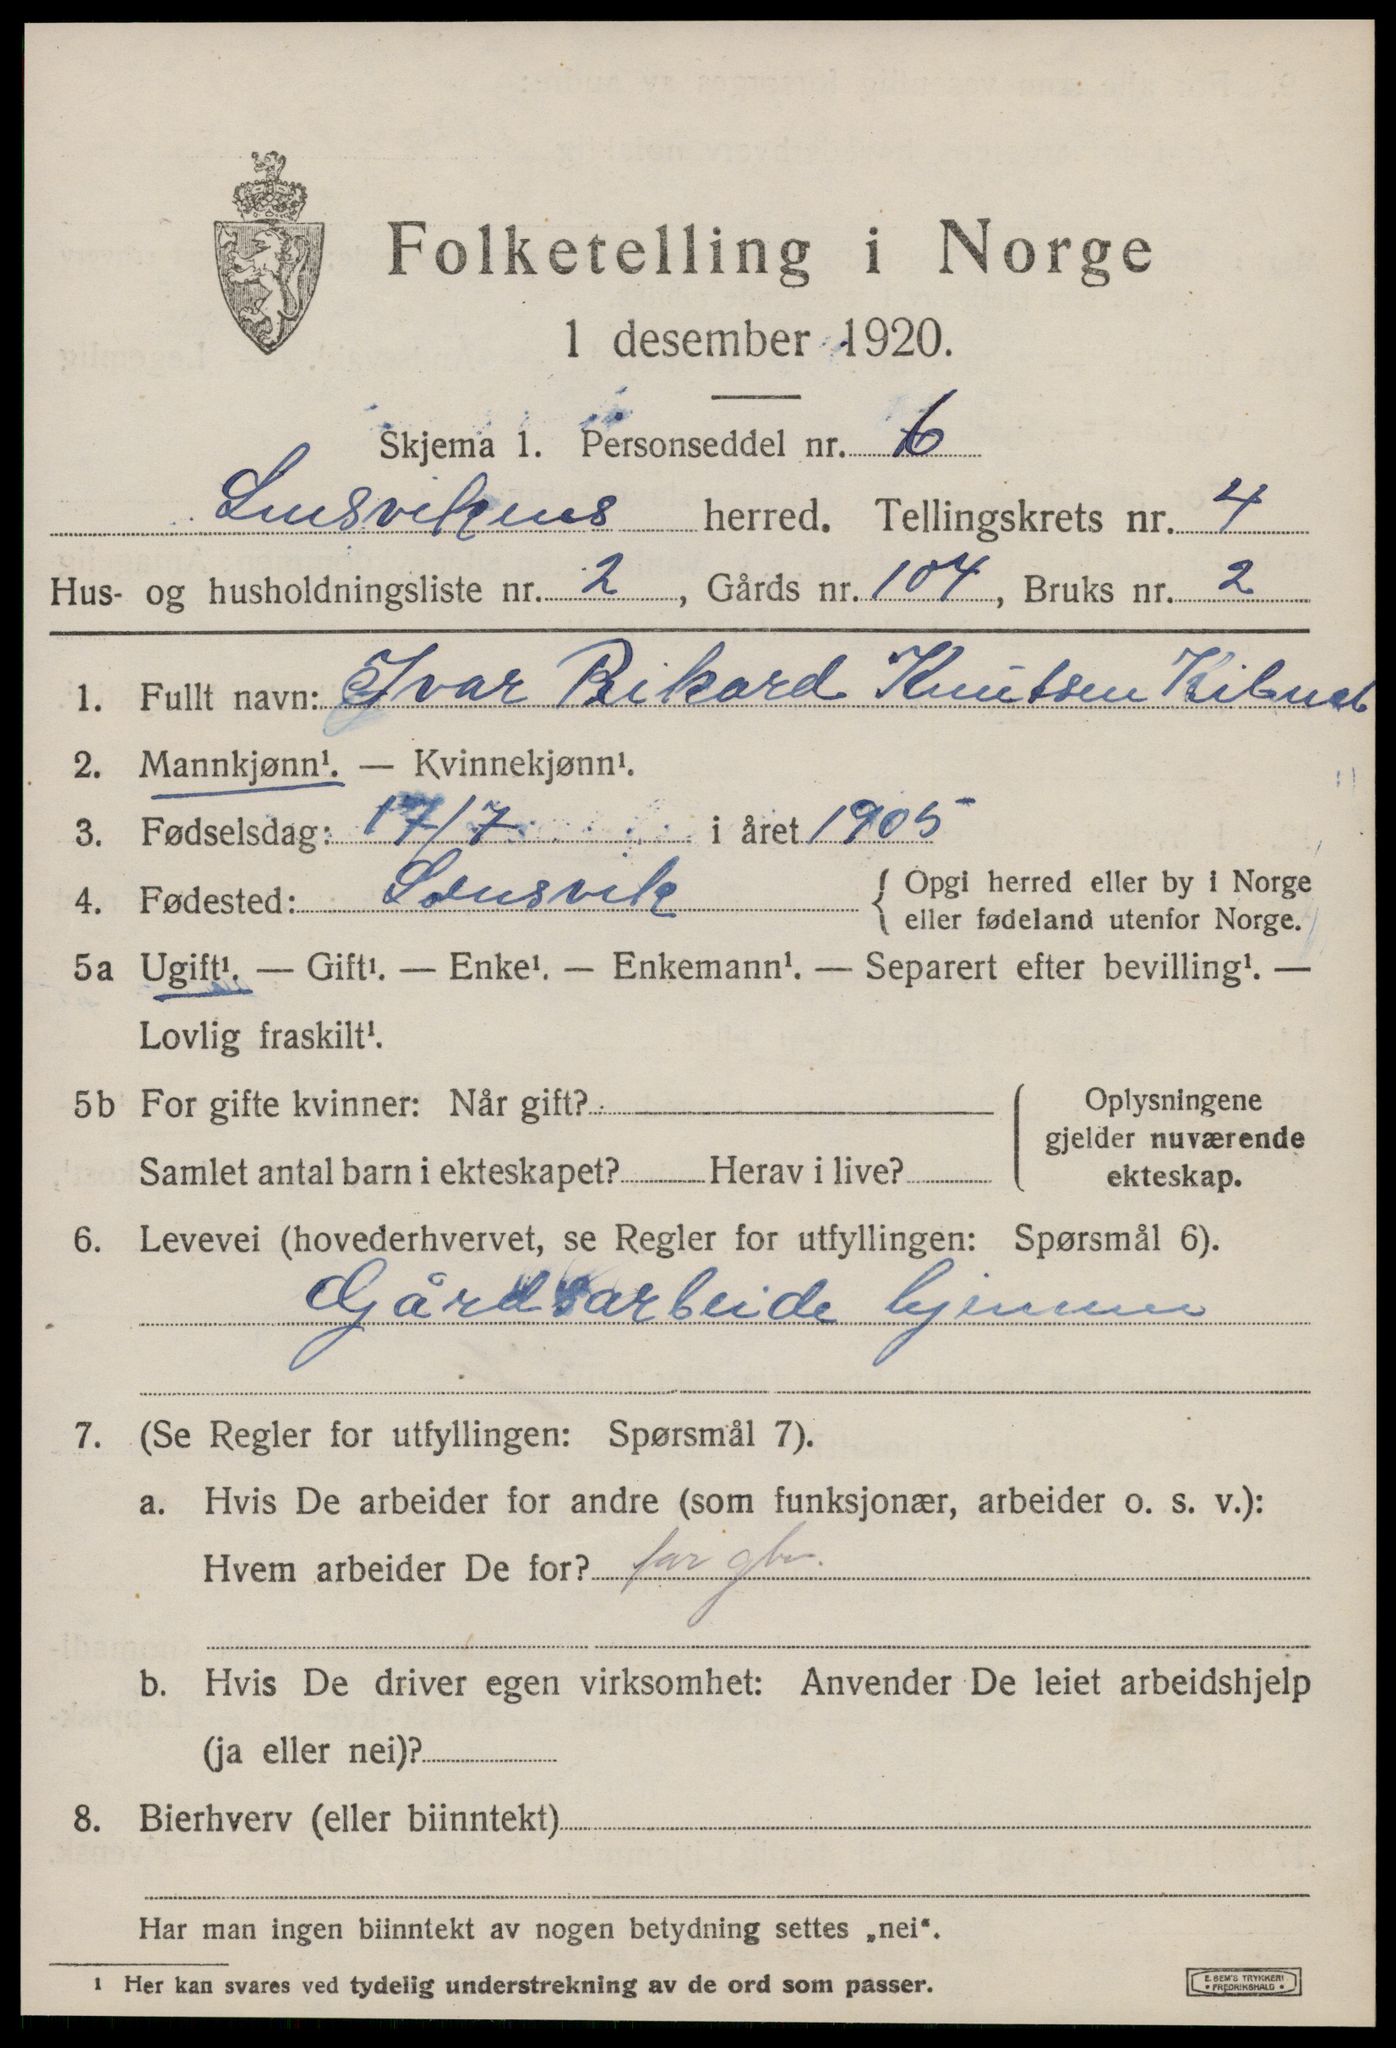 Folketelling i Norge
1 desember 1920.
Skjema 1. Personseddel nr. 6
herred. Tellingskrets nr. 4
Hus- og husholdningsliste nr. 2, Gårds nr. 104, Bruks nr. 2
1. Fullt navn: Ivar Rikard Knutsen
2. Mannkjønn¹. — Kvinnekjønn¹.
3. Fødselsdag: 17/7 i året 1905
4. Fødested: { Opgi herred eller by i Norge
eller fødeland utenfor Norge.
5a Ugift¹. — Gift¹. — Enke¹. — Enkemann¹. — Separert efter bevilling¹. —
Lovlig fraskilt¹.
5b For gifte kvinner: Når gift?
Samlet antal barn i ekteskapet? Herav i live?
Oplysningene
gjelder nuværende
ekteskap.
6. Levevei (hovederhvervet, se Regler for utfyllingen: Spørsmål 6).
Gårdsarbeide hjemme
7. (Se Regler for utfyllingen: Spørsmål 7).
a. Hvis De arbeider for andre (som funksjonær, arbeider o. s. v.):
Hvem arbeider De for? far gbr.
b. Hvis De driver egen virksomhet: Anvender De leiet arbeidshjelp
(ja eller nei)?
8. Bierhverv (eller biinntekt)
Har man ingen biinntekt av nogen betydning settes „nei“.
¹ Her kan svares ved tydelig understrekning av de ord som passer.
E. SEM'S TRYKKERI
• FREDRIKSHALD •